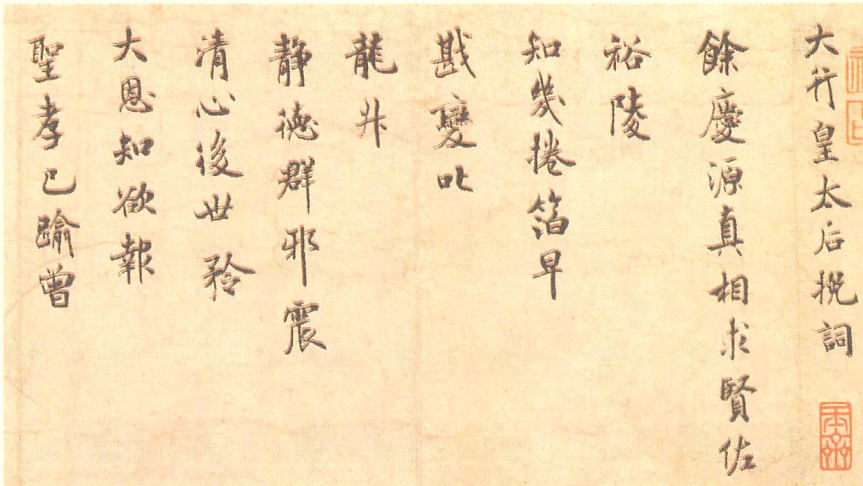 大行皇太后挽詞
餘慶源真相求賢佐
裕陵
知幾捲箔早
戡變叱
龍升
静德群邪震
清心後世矜
大恩知欲報
聖孝已踰曾